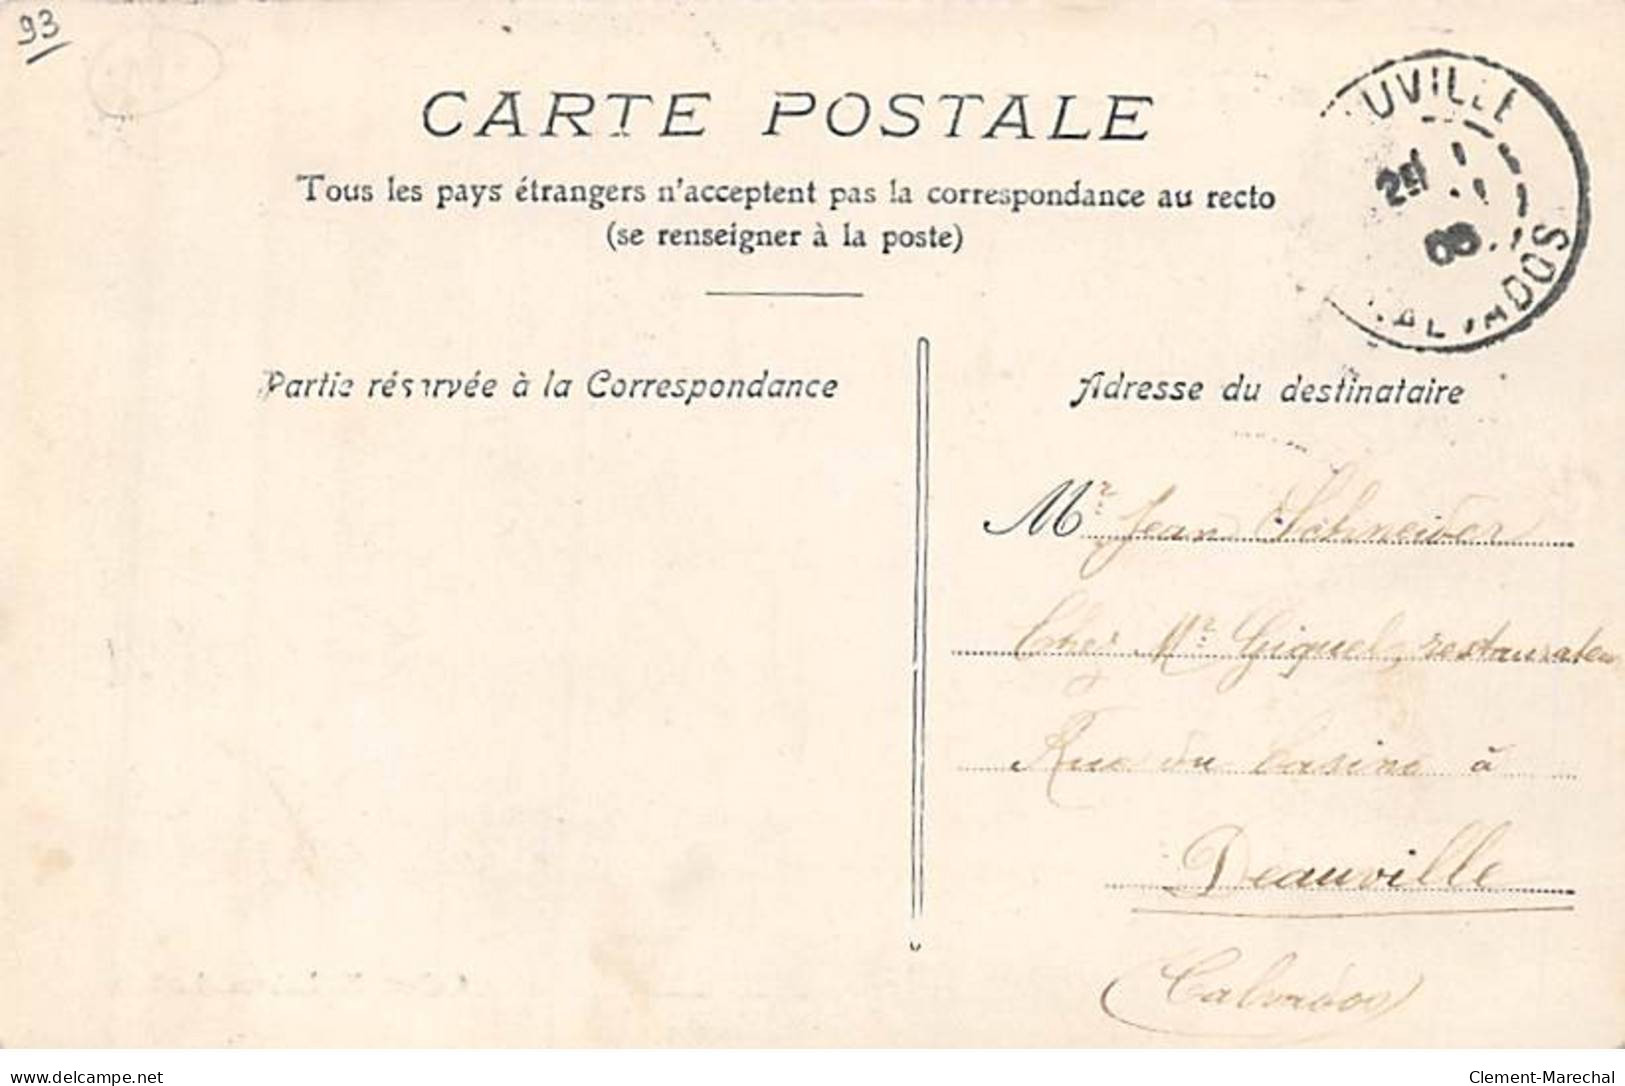 93
CARTE POSTALE
Tous les pays étrangers n'acceptent pas la correspondance au recto
(se renseigner à la poste)
UVILLE
CALVADOS
Partie réservée à la Correspondance
Adresse du destinataire
Mr Jean Schneider
Chez Mr Giquel, restaurateur
Rue du Casino à
Deauville
(Calvados)
delcampe.net
Clement-Marechal